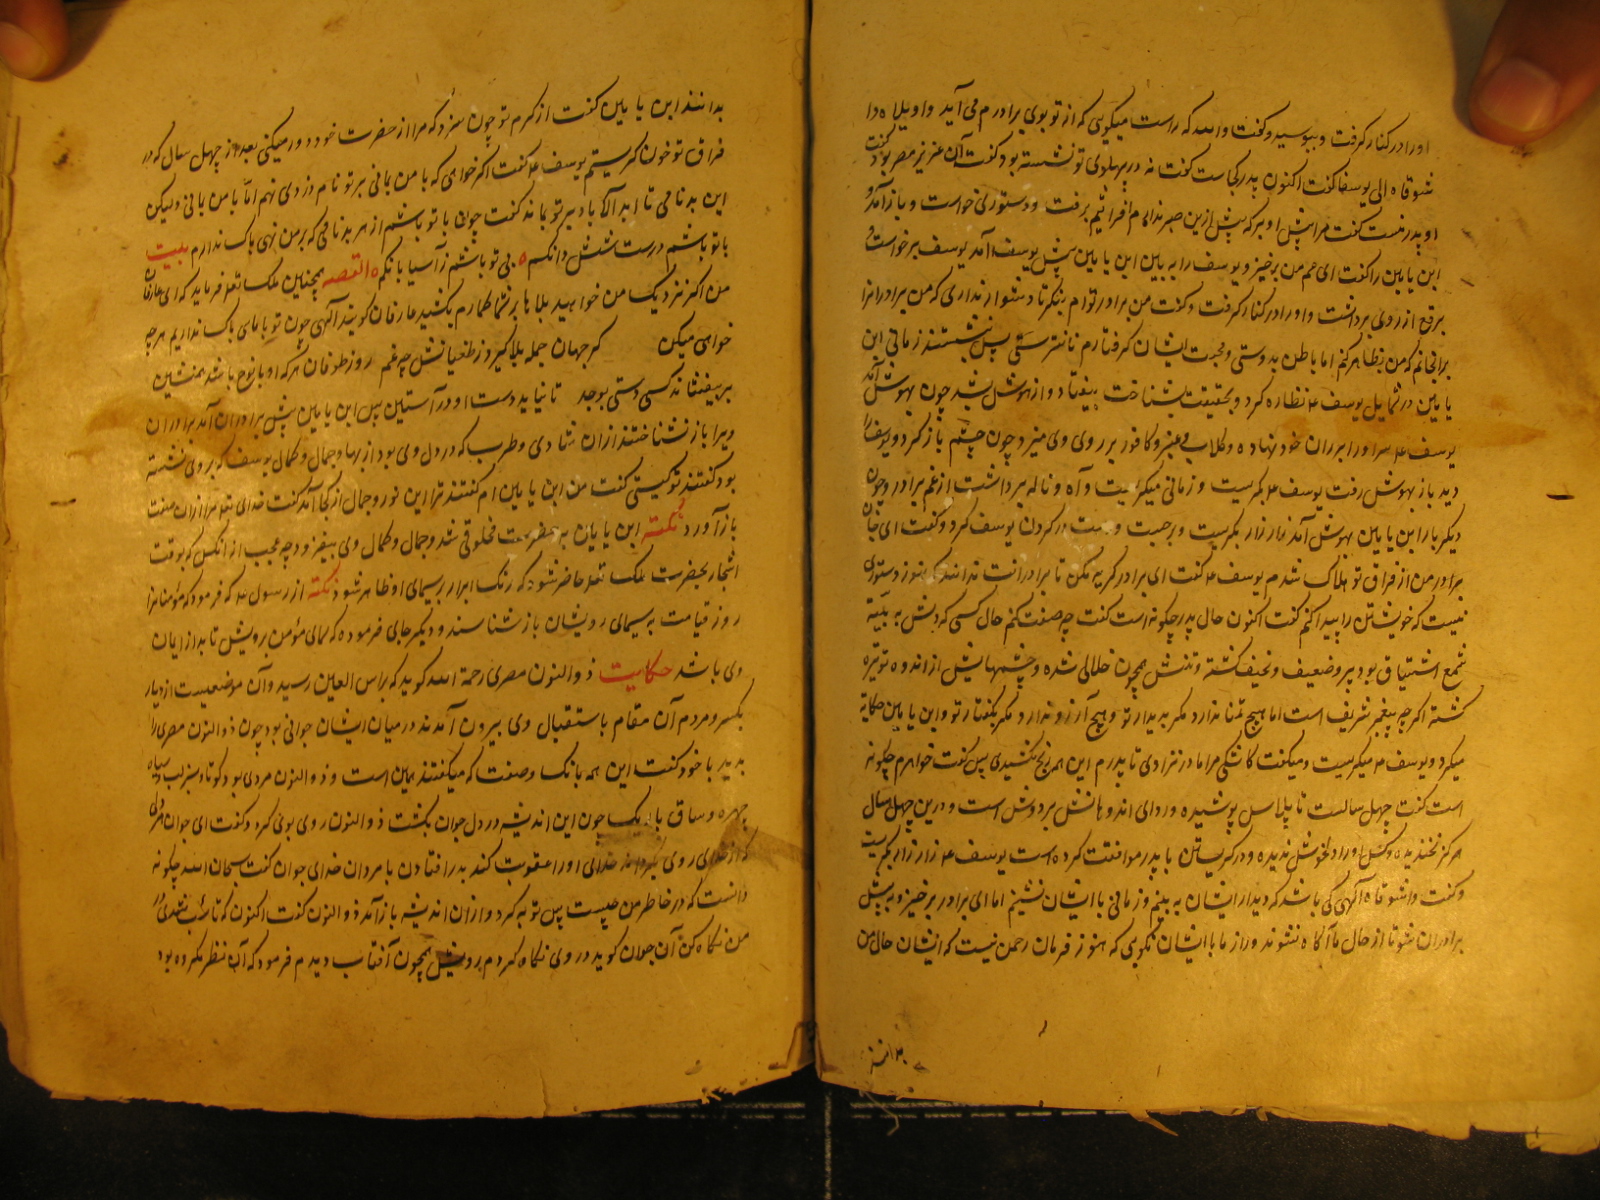 اورا در کنار گرفت و ببوسید و گفت والله که راست میگویی که از تو بوی برادرم می آید واویلاه وا
شوقاه الی یوسفا گفت اکنون پدر کجاست گفت نه در پهلوی تو نشسته بود گفت آن عزیز مصر بود گفت
او پدر منست گفت مرا پیش او بر که پیش ازین صبر ندارم افرائیم برفت و دستوری خواست و باز آمد و
ابن یامین را گفت ای عم من برخیز و یوسف را به بین ابن یامین پیش یوسف آمد یوسف برخواست و
برقع از روی برداشت و اورا در کنار گرفت و گفت من برادر توام بنگر تا دشوار نداری که من برادرانرا
برنجانم که من بظاهر کنم اما باطن بدوستی و محبت ایشان گرفتارم تا نترسی پس بنشستند زمانی ابن
یامین در شمایل یوسف ع نظاره کرد و بحقیقت بشناخت بیفتاد و از هوش بشد چون بهوش آمد
یوسف ع سر اورا بر ران خود نهاده و گلاب و عنبر و کافور بر روی وی میزد چون چشم باز کرد و یوسف را
دید باز بهوش رفت یوسف ع بگریست و زمانی میگریست و آه و ناله برداشت از غم برادر و چون
دیگر بار ابن یامین بهوش آمد زار زار بگریست و برجست و دست در گردن یوسف کرد و گفت ای جان
برادر من از فراق تو هلاک شدم یوسف ع گفت ای برادر گریه مکن تا برادرانت ندانند که هنوز دستوری
نیست که خویشتن را پیدا کنم گفت اکنون حال پدر چگونه است گفت چه صفت کنم حال کسی که دلش به
شمع اشتیاق بود پیر و ضعیف و نحیف گشته و تنش همچون خلالی شده و چشمهایش از اندوه تو تیره
گشته اگرچه پیغمبر شریف است اما هیچ تمنا ندارد مگر بدیدار تو و هیچ آرزو ندارد مگر بگفتار تو و ابن یامین حکایة
میکرد و یوسف ع میگریست و میگفت کاشکی مرا مادر نزادی تا پدرم این همه رنج نکشیدی پس گفت خواهرم چگونه
است گفت چهل سالست تا پلاس پوشیده و ردای اندوهانش بر دوش است و درین چهل سال
هرگز نخندیده و کس اورا دلخوش ندیده و در گریستن با پدر موافقت کرده است یوسف ع زار زار بگریست
و گفت واشوقاه آگهی کی باشد که دیدار ایشان به بینم و زمانی با ایشان نشینم اما ای برادر برخیز و به پیش
برادران شو تا از حال ما آگاه نشوند و راز ما با ایشان نگویی که هنوز فرمان رحمن نیست که ایشان حال من
بدانند
بدانند ابن یامین گفت از کرم تو چون سزد که مرا از حضرت خود دور میکنی بعد از چهل سال که در
فراق تو خون گریستم یوسف ع گفت اگر خواهی که با من بمانی بر تو نام دزدی نهم اما با من بمانی ولیکن
این بدنامی تا ابدالآباد بر تو بماند گفت چون با تو باشم از هر بدنامی که بر من نهی باک ندارم بیت
با تو باشم درست شش دانگم ه بی تو باشم ز آسیا بانگم ه القصه همچنین ملک تعه فرماید که ای عارفان
من اگر نزدیک من خواهید بلاها بر شما گمارم بکشید عارفان گویند آلهی چون تو با مای باک نداریم هرچه
خواهی میکن گر جهان جمله بلا گیرد ز طغیانش چه غم روز طوفان هر که او با نوح باشد همنشین
بر بیفشاند کسی دستی بوجد تا نیاید دست او در آستین پس ابن یامین پیش برادران آمد برادران
ویرا باز نشناختند از آن شادی و طرب که در دل وی بود از بها و جمال و کمال یوسف که بر وی نشسته
بود گفتند تو کیستی گفت من ابن یامین ام گفتند ترا این نور و جمال از کجا آمد گفت خدای تعه مرا از آن صفت
باز آورد نکته ابن یامین به حضرت مخلوقی شد و جمال و کمال وی بیفزود چه عجب از آنکس که بوقت
اسحار بحضرت ملک تعه حاضر شود که رنگ ابرار بر سیمای او ظاهر شود نکته از رسول ع م که فرمود که مؤمنانرا
روز قیامت به سیمای رویشان باز شناسند و دیگر جای فرموده که سیمای مؤمن برویش تا بد از ایمان
وی باشد حکایت ذوالنون مصری رحمة الله گوید که براس العین رسید و آن موضعیست از دیار
بکر و مردم آن مقام باستقبال وی بیرون آمدند در میان ایشان جوانی بود چون ذوالنون مصری را
بدید با خود گفت این همه بانگ و صفت که میگفتند همین است و ذوالنون مردی بود کوتاه سبز لب سیاه
چهره و ساق باریک چون این اندیشه در دل جوان بگذشت ذوالنون روی بوی کرد و گفت ای جوان هر دلی
که از خدای روی بگرداند خدای اورا عقوبت کند بدر افتادن با مردان خدای جوان گفت سبحان الله چگونه
دانست که در خاطر من چیست پس توبه کرد و از آن اندیشه باز آمد ذوالنون گفت اکنون که تائب شدی در
من نگاه کن آن جوان گوید در وی نگاه کردم رویش همچون آفتاب دیدم فرمود که آن منظر نکرده بود